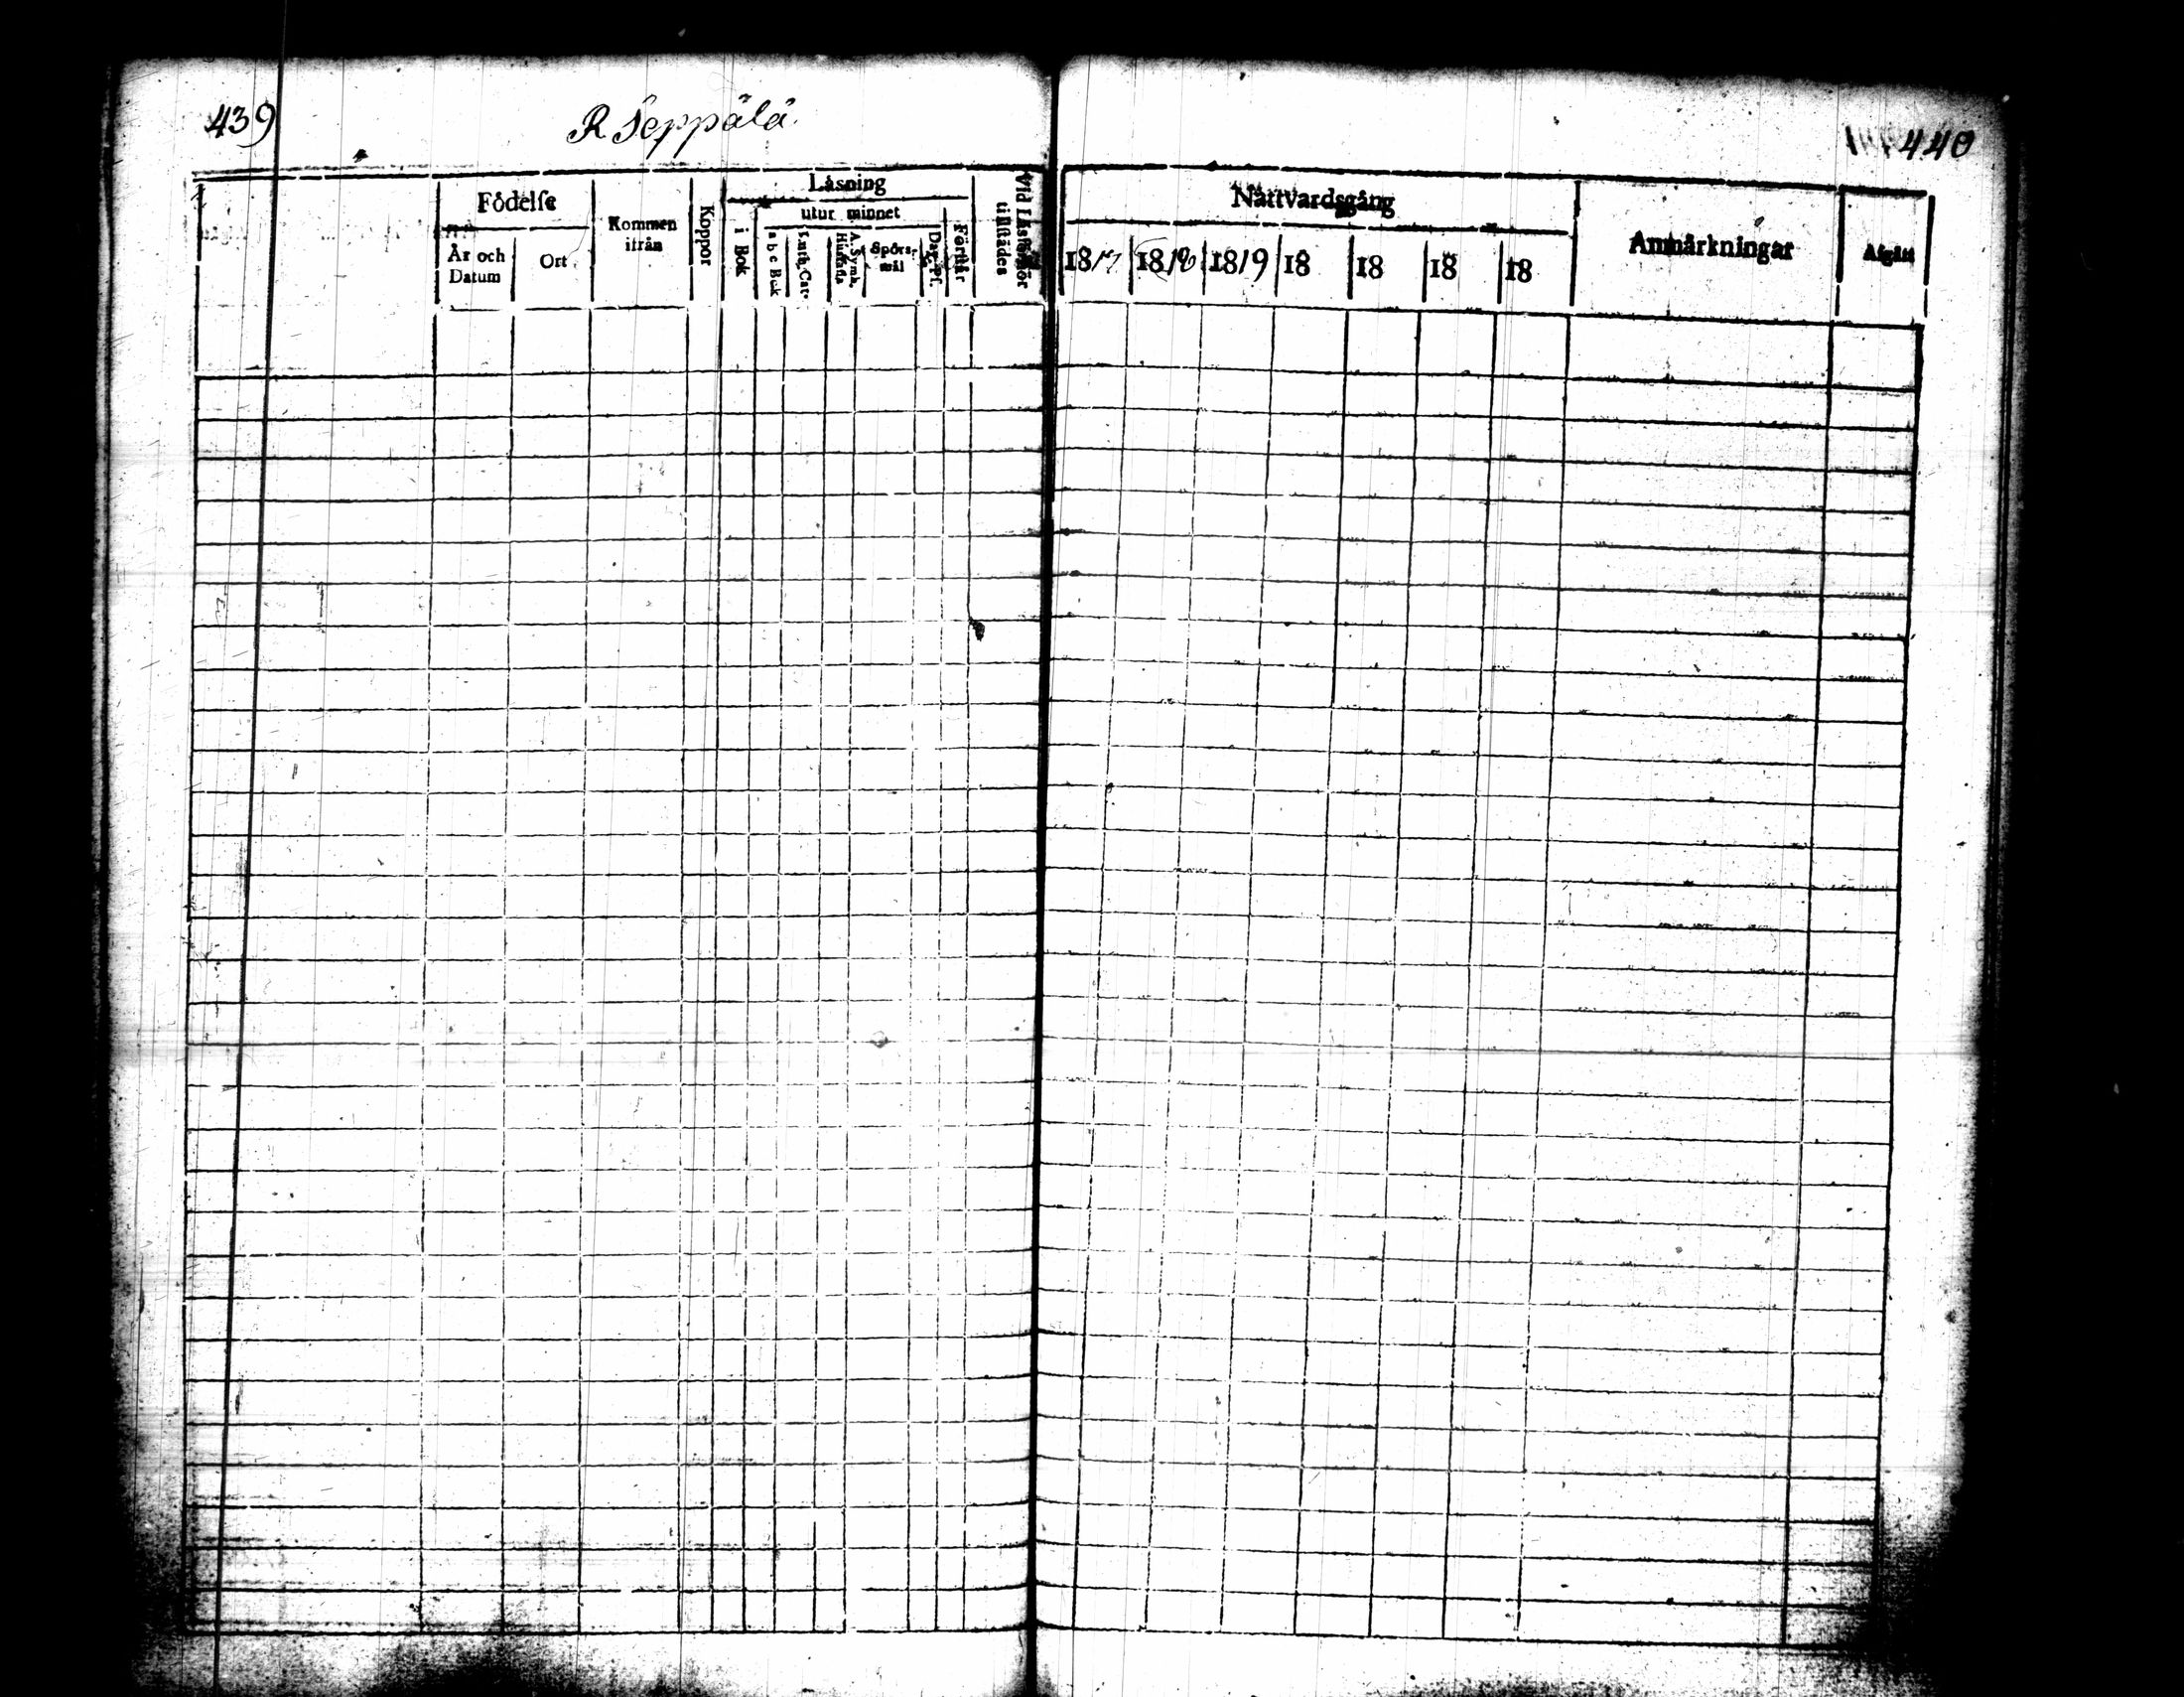 439
R Seppälä
440
Födelse
År och Datum
Ort
Kommen ifrån
Koppor
Läsning
i Bok
utur minnet
a b c Bok
Luth. Cat.
A. Symb.
Spörsmål
Dav. Ps.
Förstår
Vid Läsförhör tillstädes
Nattvardsgång
1817
1818
1819
18
18
18
18
Anmärkningar
Afgått